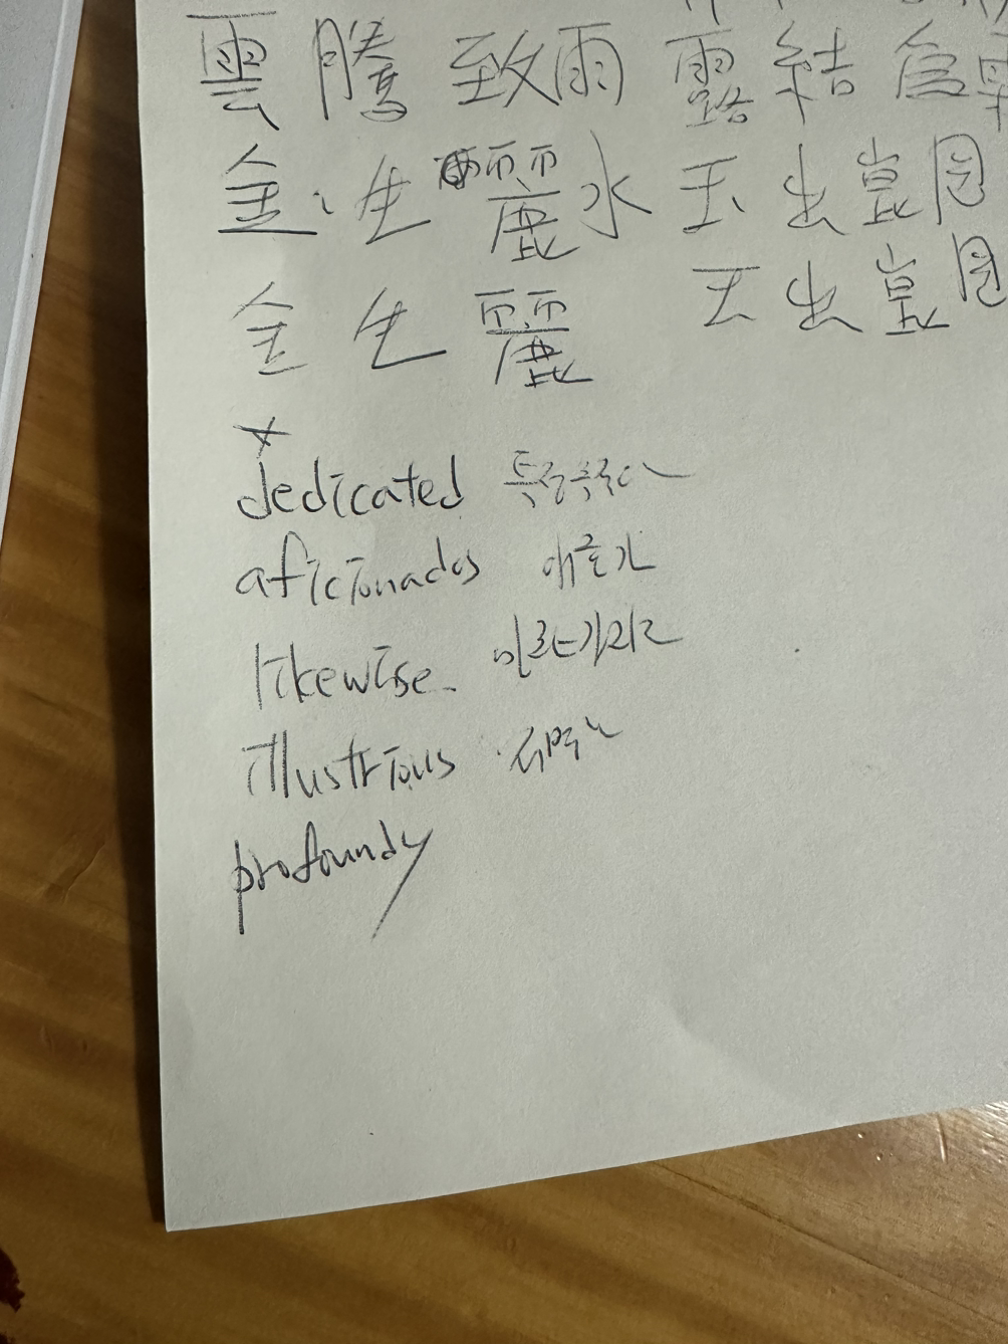 雲騰致雨 露結爲霜
金生麗水 玉出崑岡
金生麗 玉出崑岡
dedicated
aficionados 애호가
likewise 마찬가지로
illustrious 유명한
profoundy